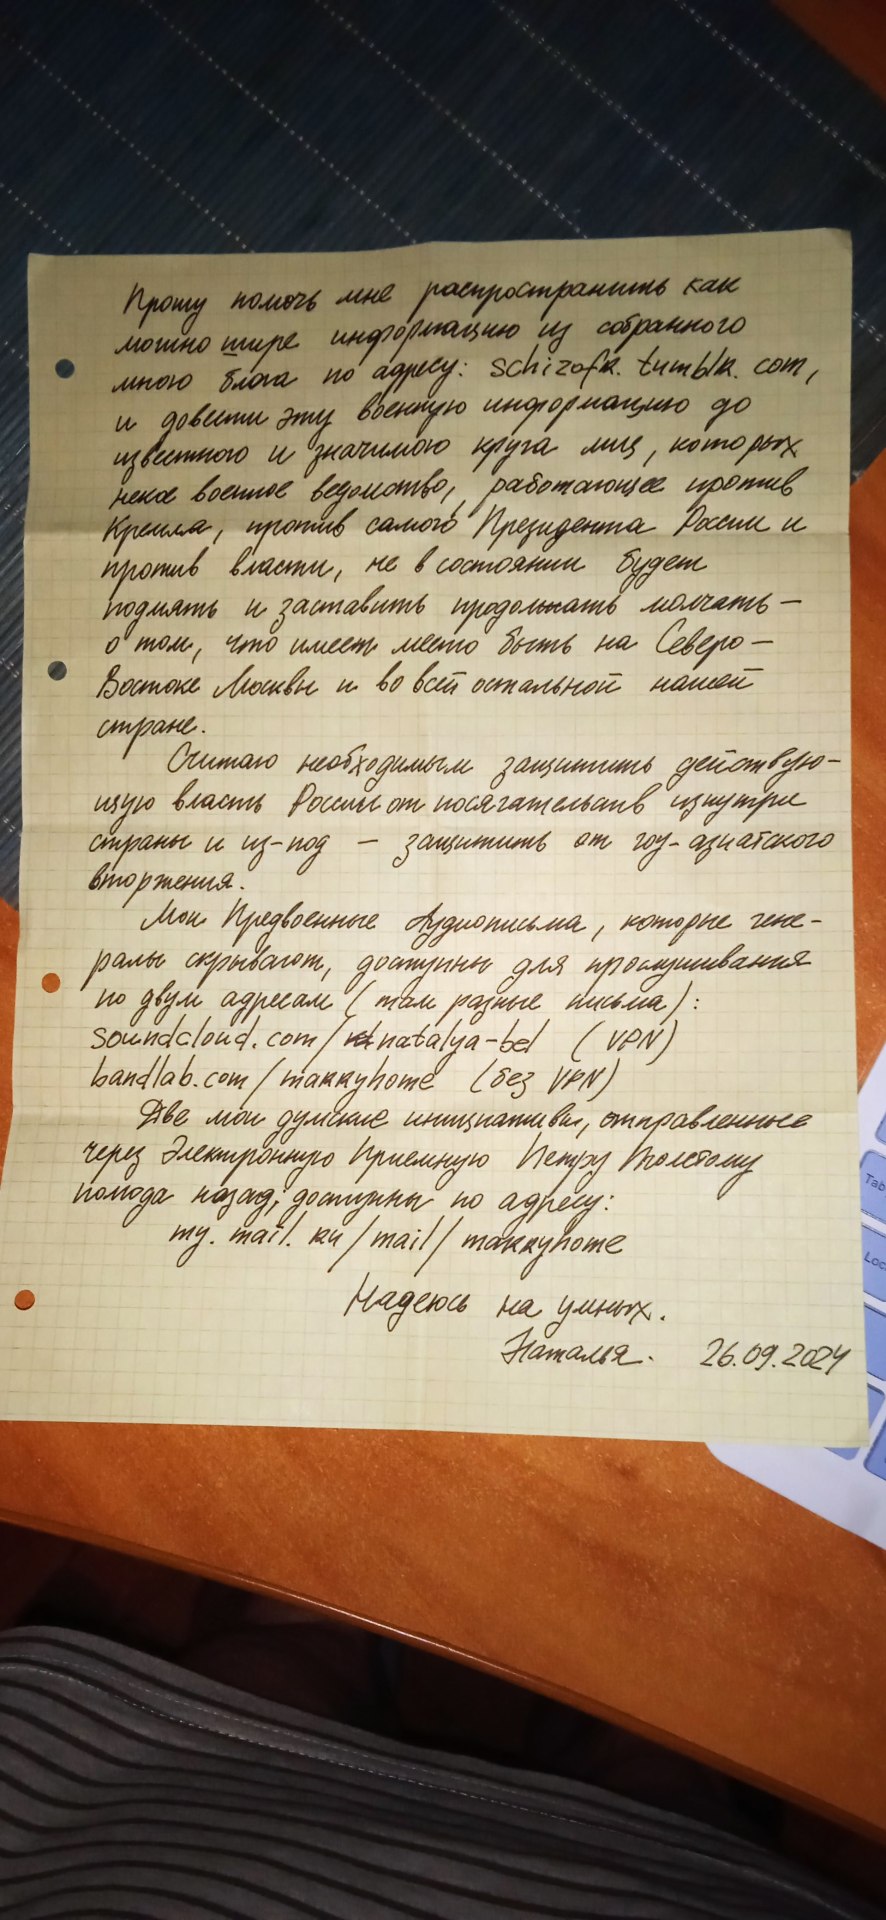 Прошу помочь мне распространить как
можно шире информацию из собранного
мною блога по адресу: schizofr.tumblr.com,
и довести эту военную информацию до
известного и значимого круга лиц, которых
некое военное ведомство, работающее против
Кремля, против самого Президента России и
против власти, не в состоянии будет
подмять и заставить продолжать молчать –
о том, что имеет место быть на Северо–
Востоке Москвы и во всей остальной нашей
стране.
Считаю необходимым защитить действую–
щую власть России от посягательств изнутри
страны и из-под – защитить от гоу-азиатского
вторжения.
Мои Предвоенные Аудиописьма, которые гене–
ралы скрывают, доступны для прослушивания
по двум адресам (там разные письма):
soundcloud.com/natalya-bel (VPN)
bandlab.com/markyhome (без VPN)
Две мои думские инициативы, отправленные
через Электронную Приемную Петру Толстому
полгода назад, доступны по адресу:
my.mail.ru/mail/markyhome
Надеюсь на умных.
Наталья. 26.09.2024
Tab